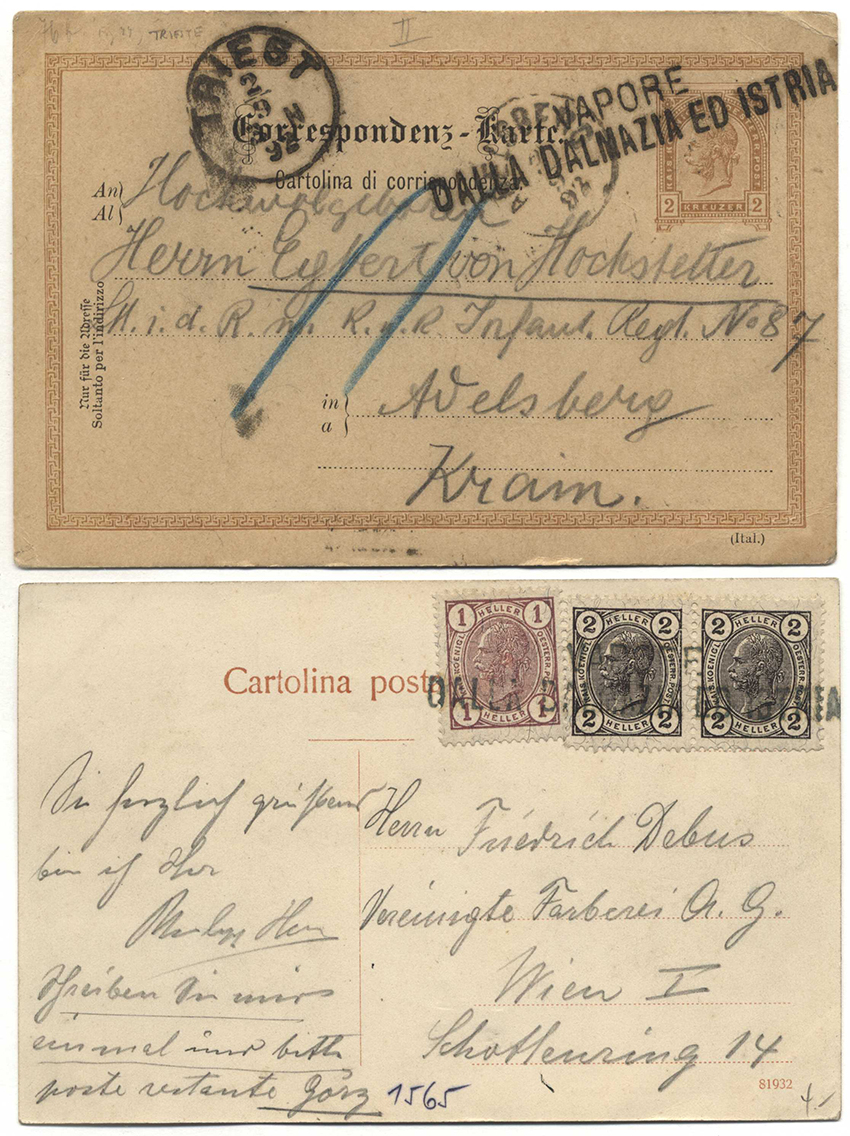 II
TRIESTE
TRIEST
VAPORE
DALLA DALMAZIA ED ISTRIA
Correspondenz-Karte.
Cartolina di corrispondenza.
2 KREUZER 2
An
Al
Hochwolgeboren
Herrn Egbert von Hochstetter
Lt. i. d. R. m. K. u. K. Infant. Regt. No 87
in
a
Adelsberg
Krain.
Nur für die Adresse
Soltanto per l'indirizzo
(Ital.)
1 HELLER 1
1 HELLER 1
2 HELLER 2
2 HELLER 2
2 HELLER 2
2 HELLER 2
Cartolina post
DALLA
Sie herzlich grüßend
bin ich Ihr
Schreiben Sie mir
einmal und bitte
poste restante Görz
1565
Herrn Friedrich Debus
Vereinigte Färberei A. G.
Wien I
Schottenring 14
81932